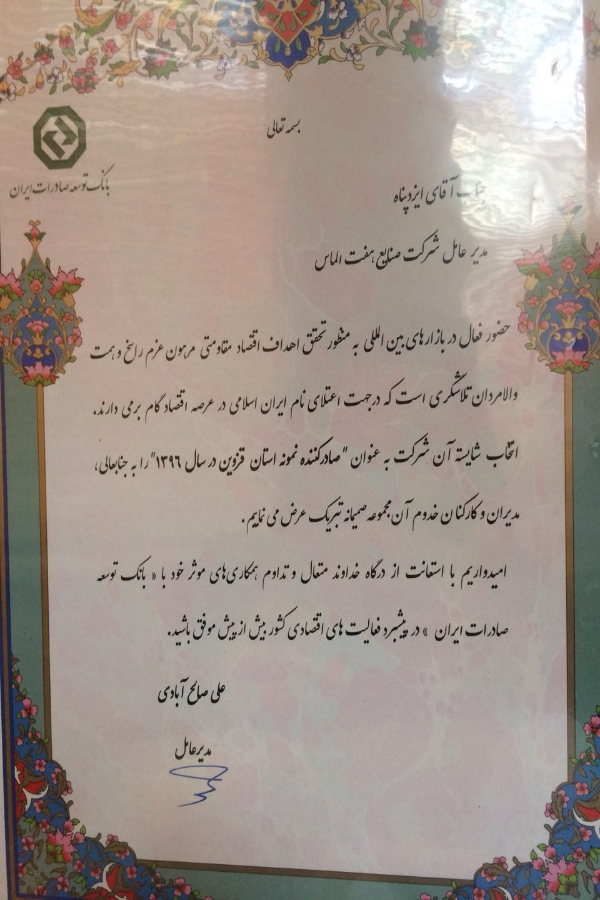 بسمه تعالی
بانک توسعه صادرات ایران
جناب آقای ایزدپناه
مدیر عامل شرکت صنایع هفت الماس
حضور فعال در بازارهای بین المللی به منظور تحقق اهداف اقتصاد مقاومتی مرهون عزم راسخ و همت
والامردان تلاشگری است که درجهت اعتلای نام ایران اسلامی در عرصه اقتصاد گام برمی دارند.
انتخاب شایسته آن شرکت به عنوان "صادرکننده نمونه استان قزوین در سال ۱۳۹۶" را به جنابعالی،
مدیران و کارکنان خدوم آن مجموعه صمیمانه تبریک عرض می نمایم.
امیدواریم با استعانت از درگاه خداوند متعال و تداوم همکاری‌های موثر خود با « بانک توسعه
صادرات ایران » در پیشبرد فعالیت های اقتصادی کشور بیش از پیش موفق باشید.
علی صالح آبادی
مدیرعامل